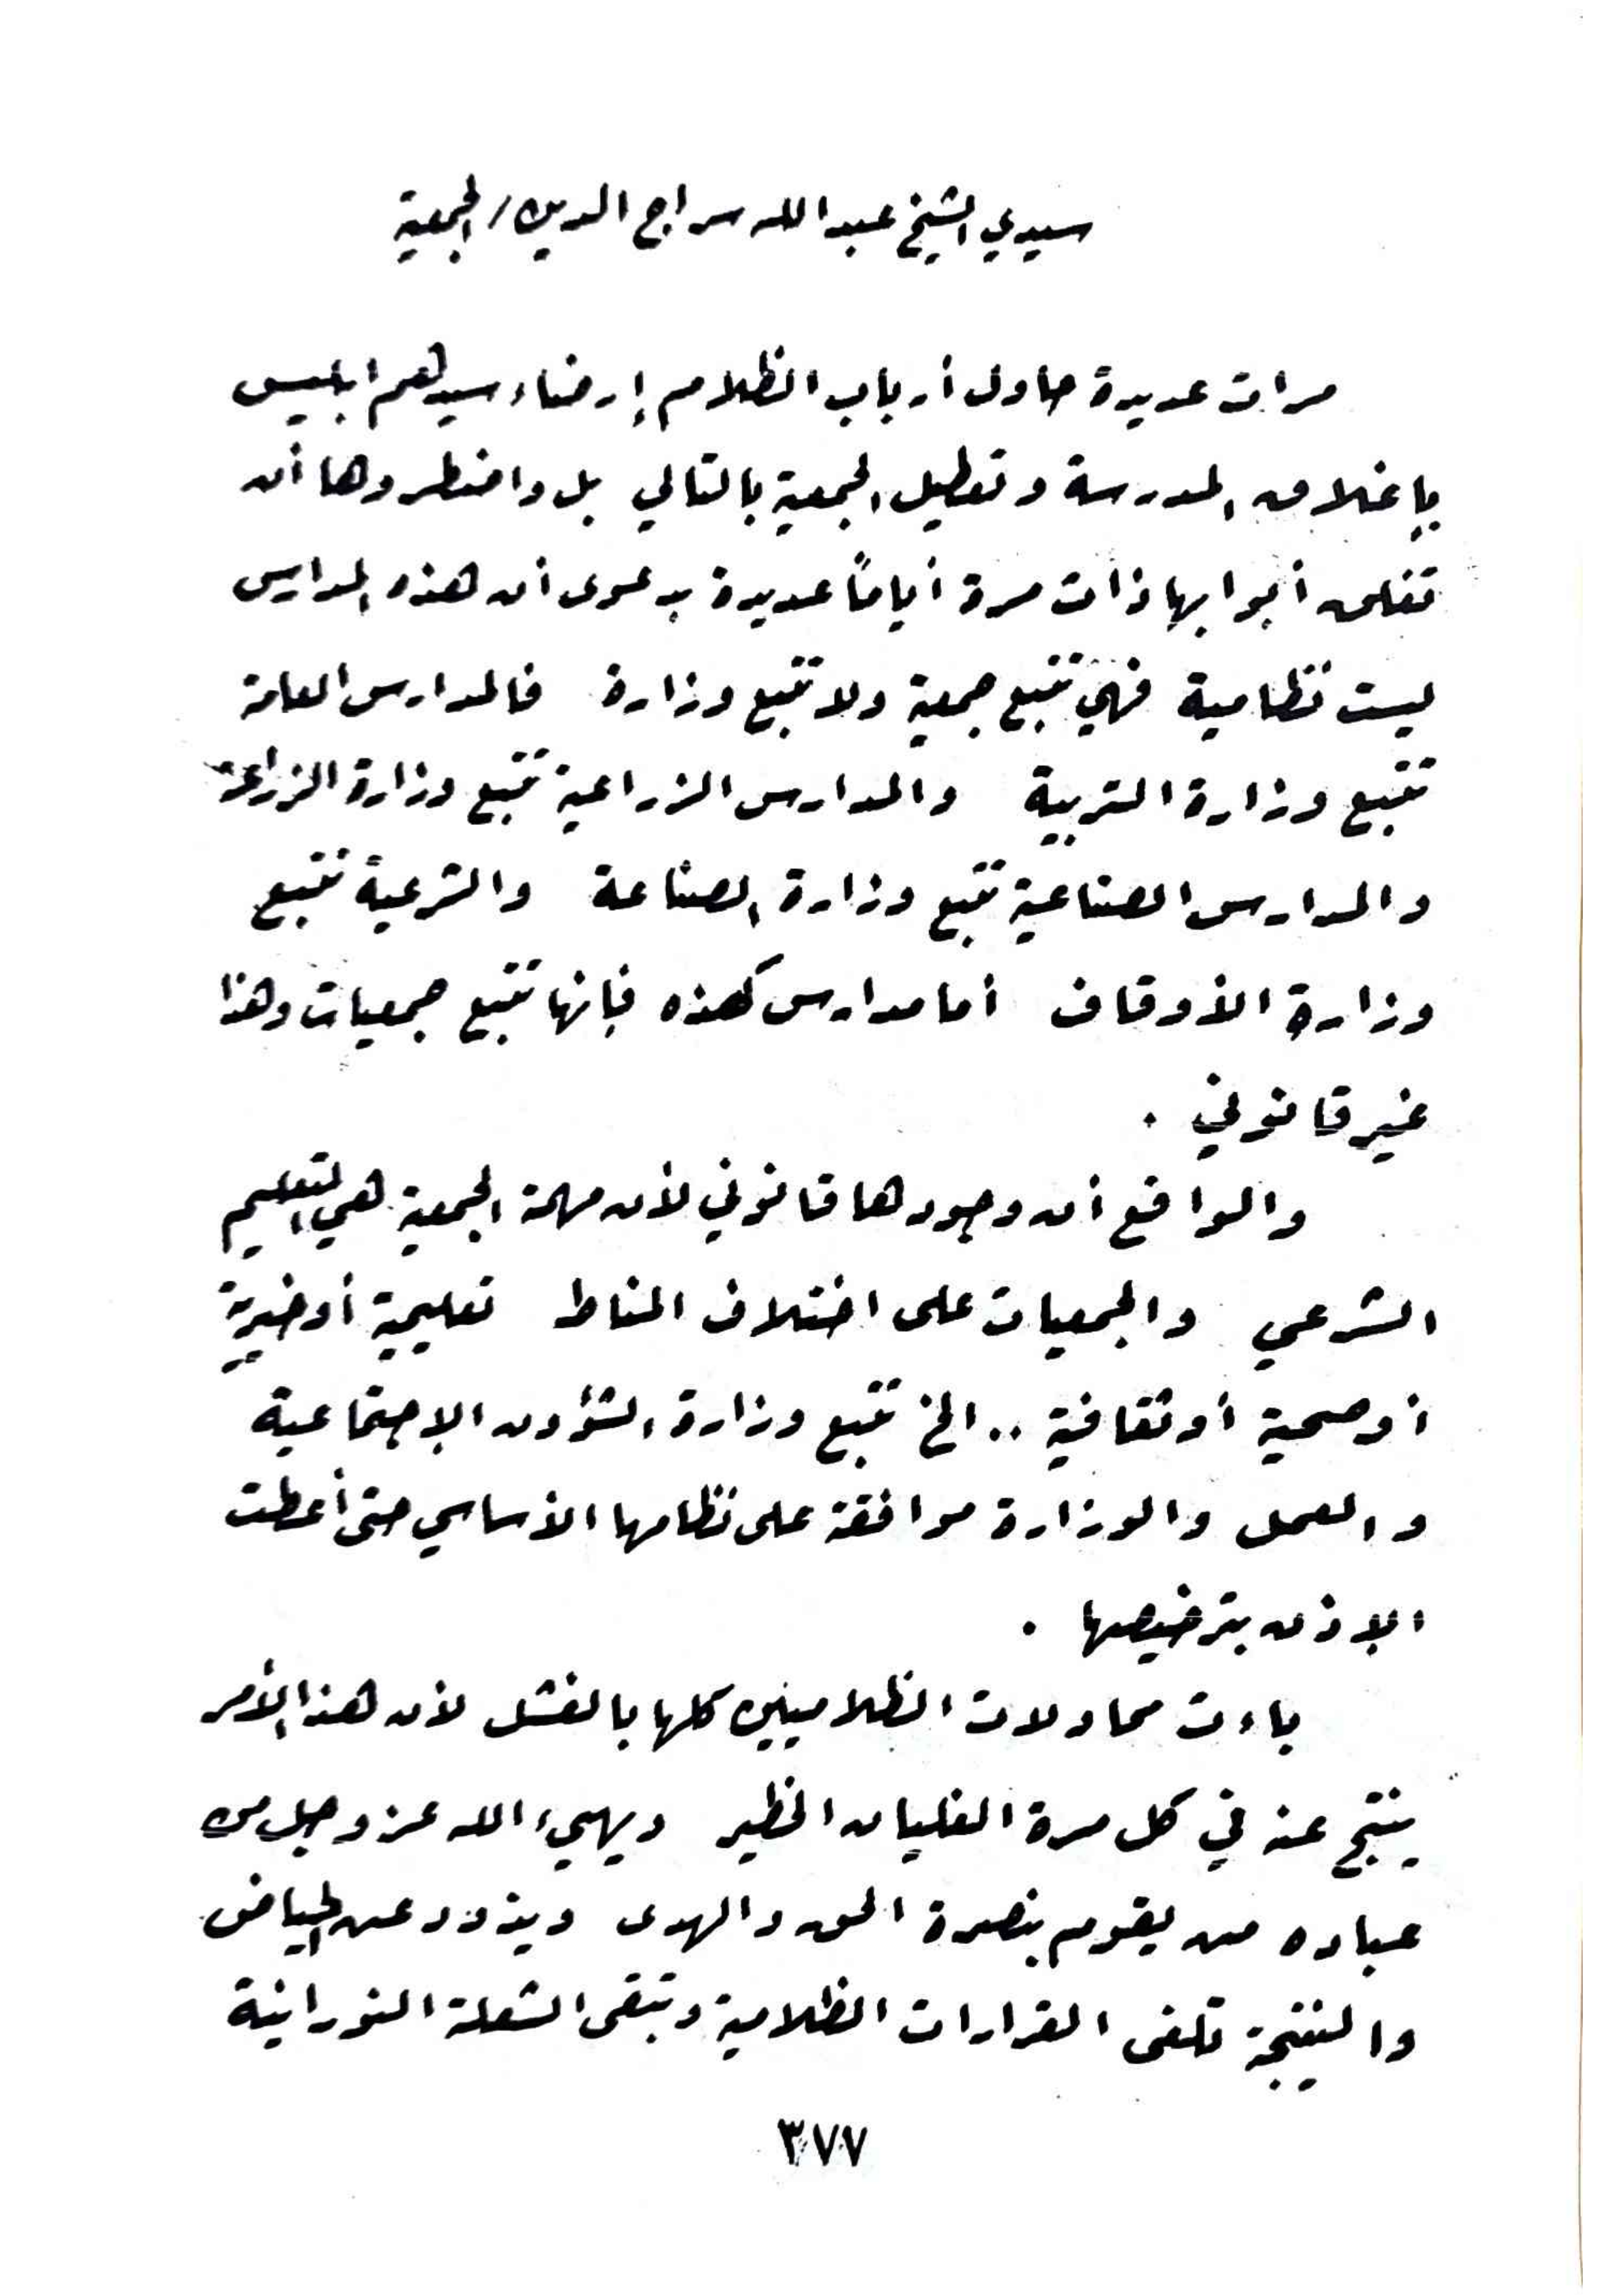 سيدي الشيخ عبد الله سراج الدين / الجمعية
مرات عديدة حاول أرباب الظلام إرضاء سيدهم ابليس
بإغلاق المدرسة وتعطيل الجمعية بالتالي بل واضطروها أن
تغلق أبوابها ذات مرة أياماً عديدة بدعوى أن هذه المدارس
ليست نظامية فهي تتبع جمعية ولا تتبع وزارة فالمدارس العامة
تتبع وزارة التربية والمدارس الزراعية تتبع وزارة الزراعة
والمدارس الصناعية تتبع وزارة الصناعة والشرعية تتبع
وزارة الأوقاف أما مدارس كهذه فإنها تتبع جمعيات وهذا
غير قانوني .
والواقع أن وجودها قانوني لأن مهمة الجمعية هي التعليم
الشرعي والجمعيات على اختلاف المناط تعليمية أو خيرية
أو صحية أو ثقافية .. الخ تتبع وزارة الشؤون الاجتماعية
والعمل والوزارة موافقة على نظامها الأساسي حتى أعطت
الإذن بترخيصها .
باءت محاولات الظلاميين كلها بالفشل لأن هذا الأمر
ينتج عنه في كل مرة الغليان الخطير ويهيء الله عز وجل من
عباده من يقوم بنصرة الحق والهدى ويذود عن الحياض
والنتيجة تلغى القرارات الظلامية وتبقى الشعلة النورانية
٣٧٧